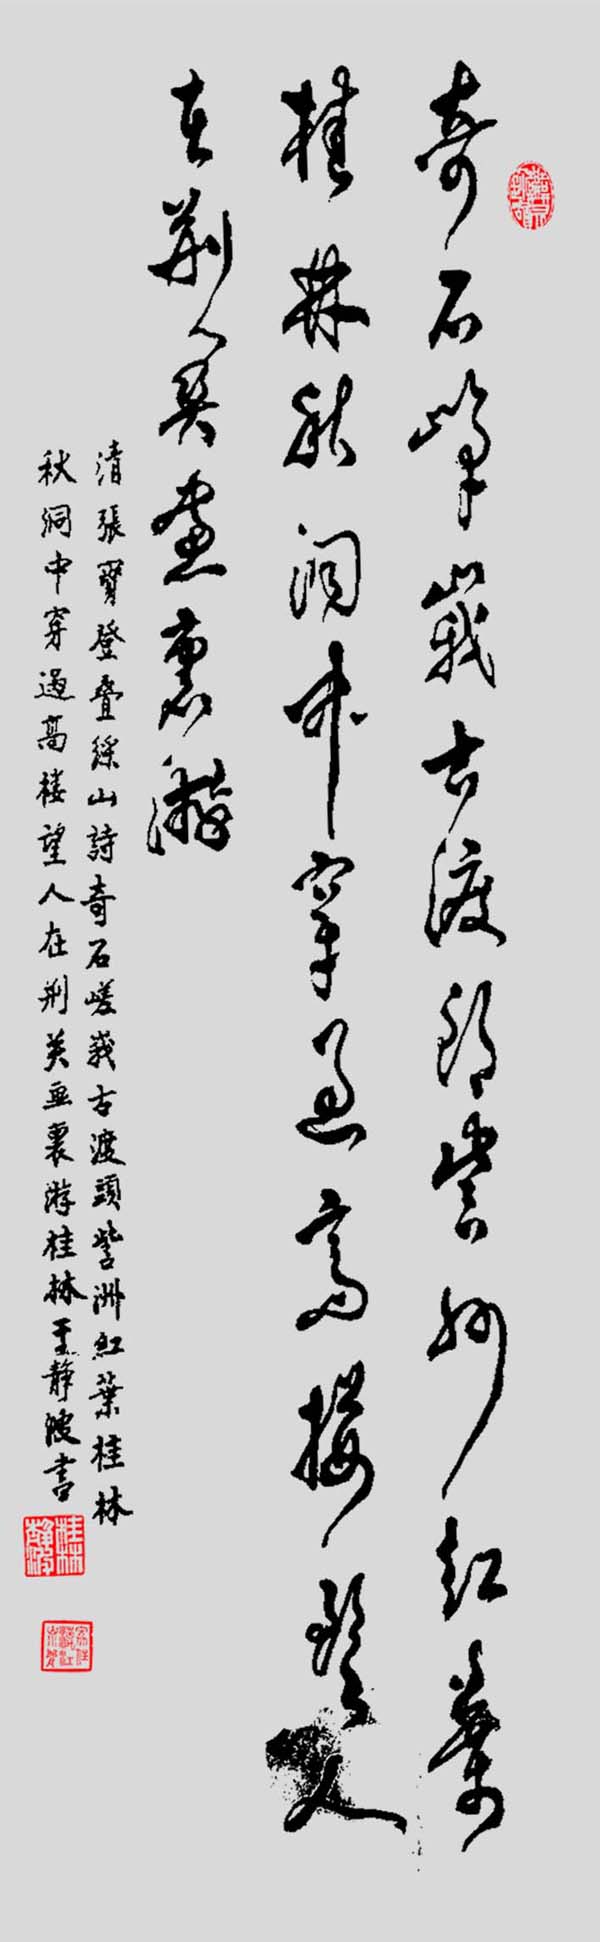 奇石嵯峩古渡頭訾洲紅葉
桂林秋洞中穿過高樓望人
在荆关畫裏游
清張寶登疊綵山詩奇石嵯峩古渡頭訾洲紅葉桂林
秋洞中穿過高楼望人在荆关画裏游桂林王静波书